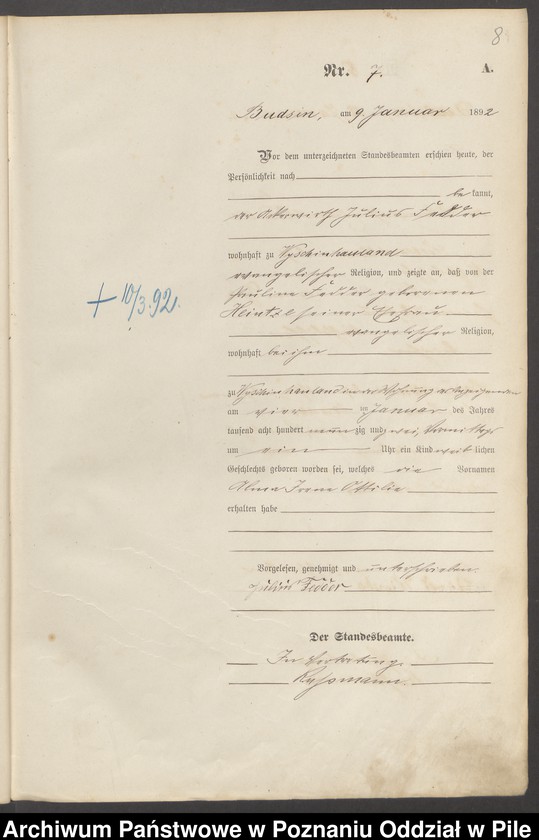 8
Nr. 7. A.
Budsin, am 9. Januar 1892
Vor dem unterzeichneten Standesbeamten erschien heute, der
Persönlichkeit nach
be kannt,
der Ackerwirth Julius Fedder
wohnhaft zu Wyschinhauland
evangelischer Religion, und zeigte an, daß von der
Pauline Fedder geborenen
Heintz seiner Ehefrau
evangelischer Religion,
wohnhaft bei ihm
+ 10/3. 92.
zu Wyschinhauland in der Wohnung des Anzeigenden
am vier ten Januar des Jahres
tausend acht hundert neun zig und zwei, Vormittags
um ein Uhr ein Kind weib lichen
Geschlechts geboren worden sei, welches die Vornamen
Alma Irene Ottilie
erhalten habe
Vorgelesen, genehmigt und unterschrieben.
Julius Fedder
Der Standesbeamte.
In Vertretung
Archiwum Państwowe w Poznaniu Oddział w Pile